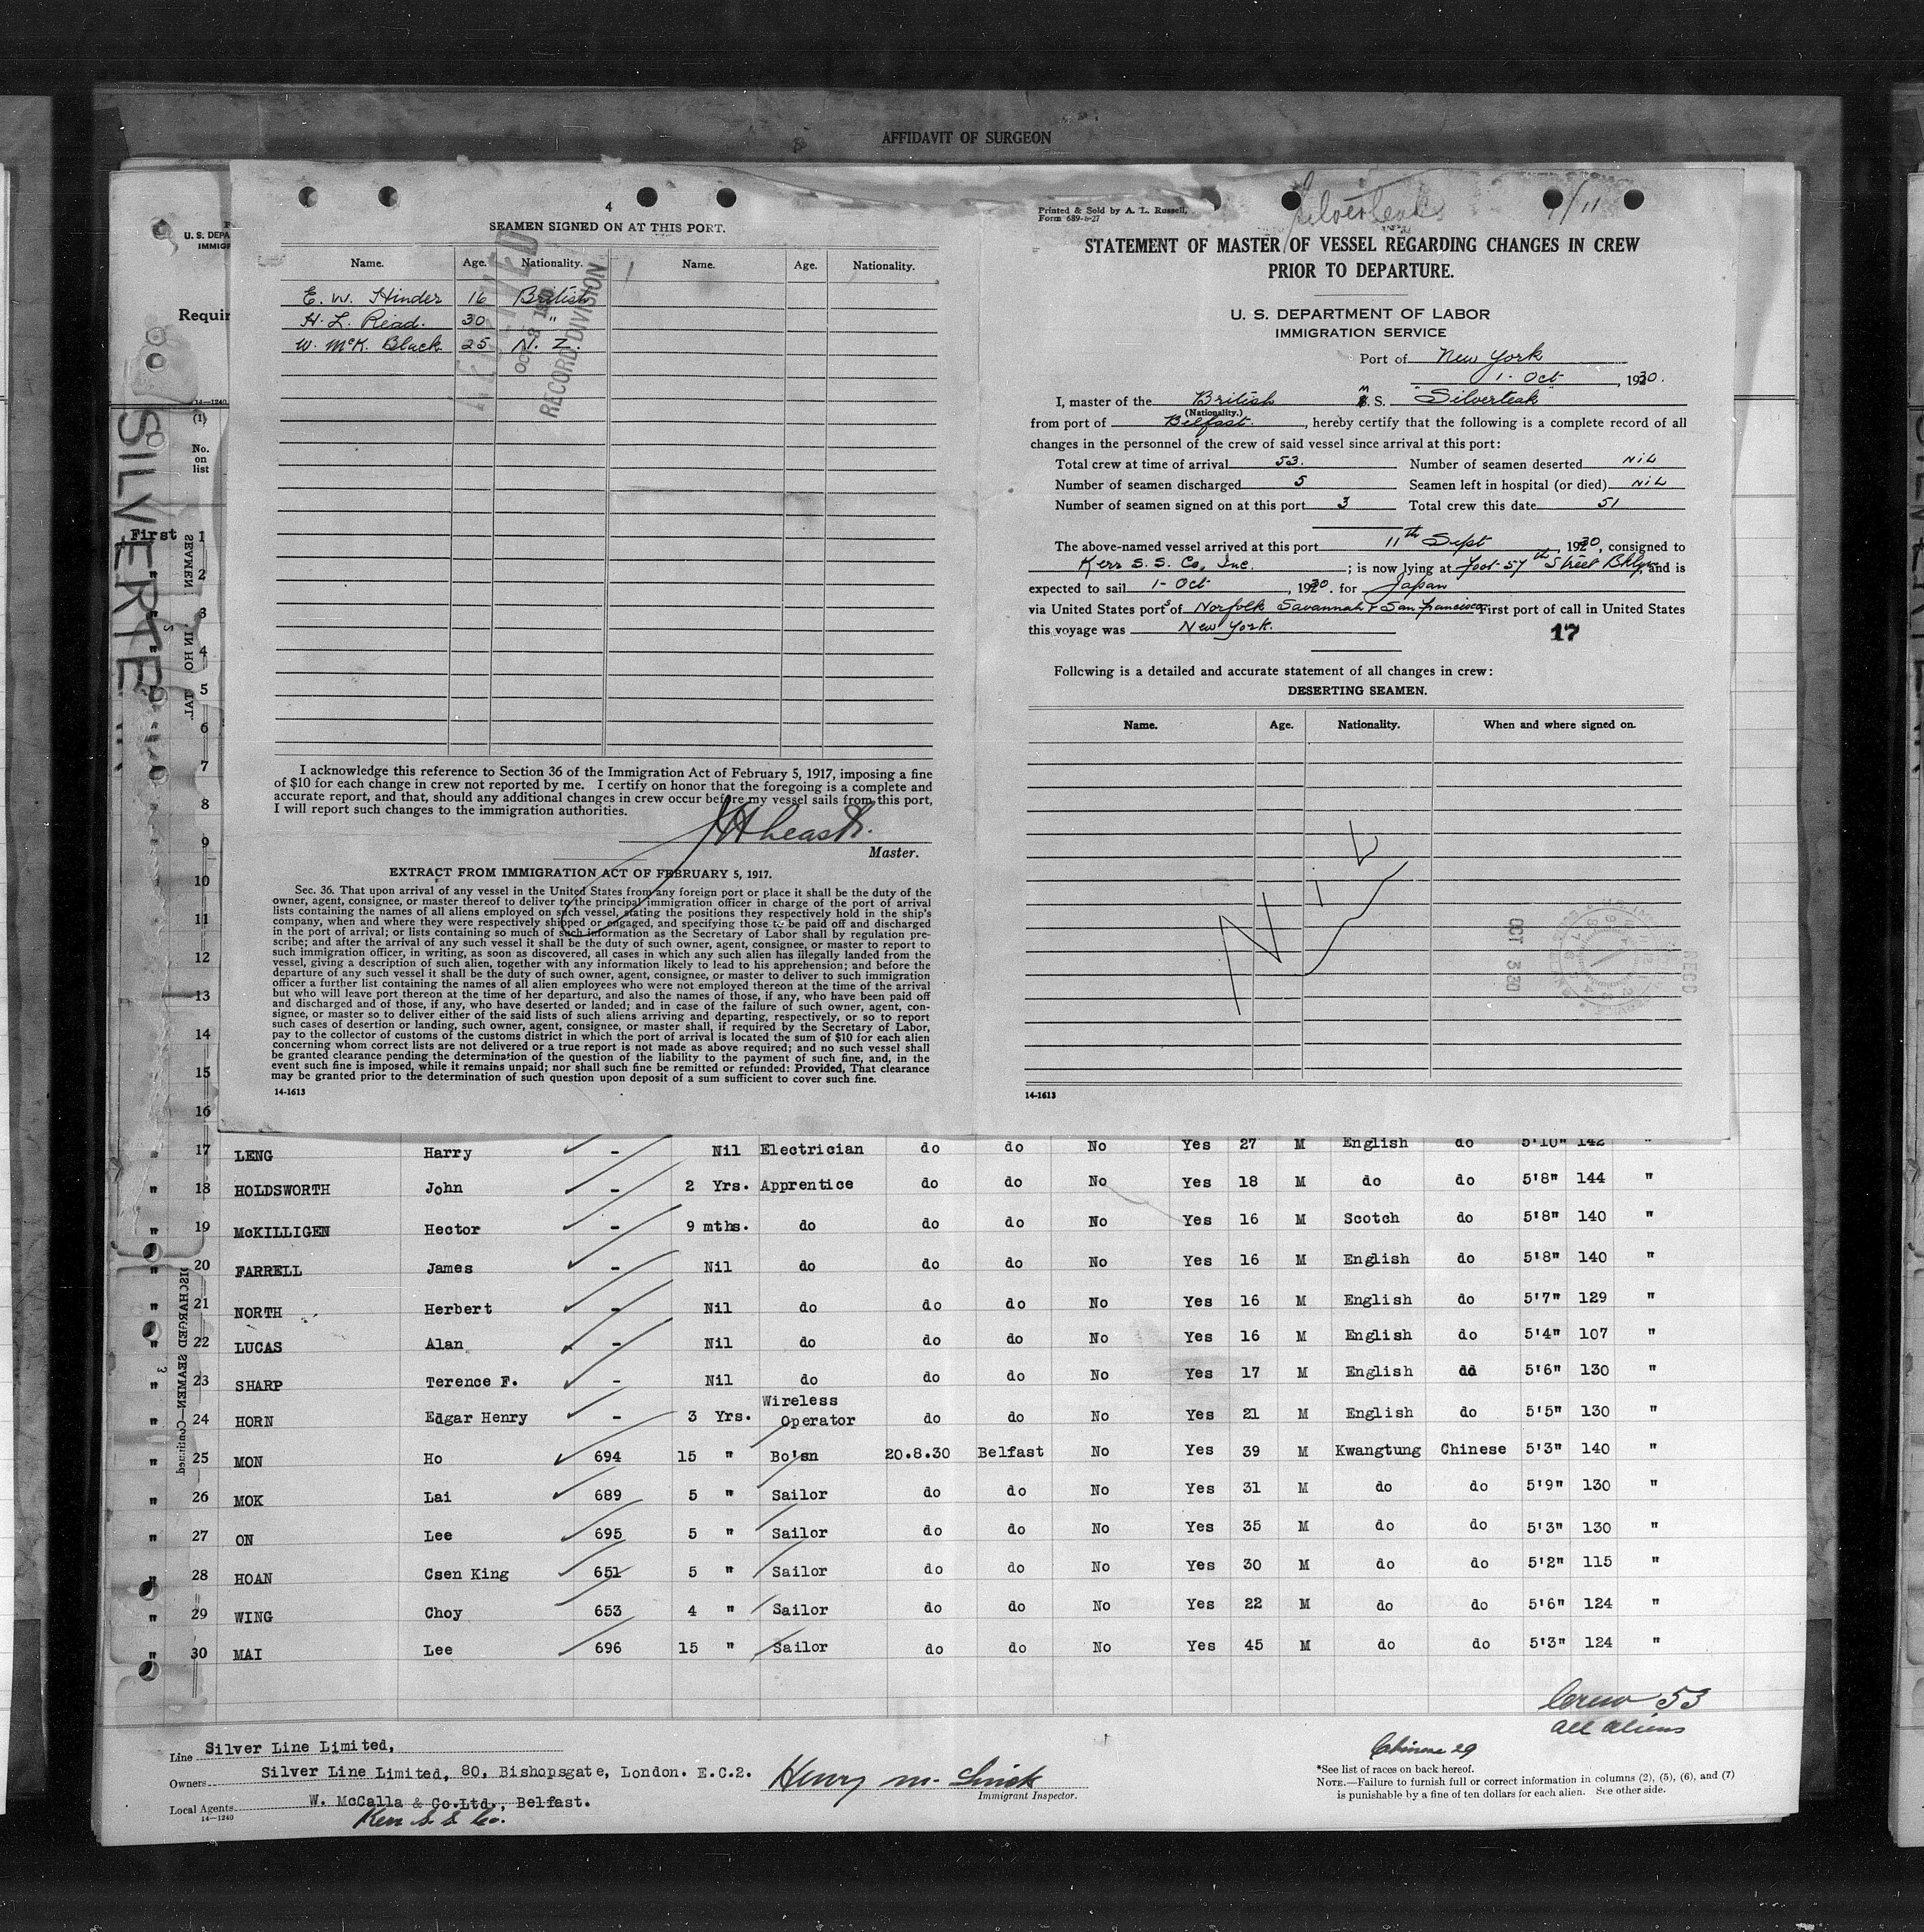 AFFIDAVIT OF SURGEON
4
SEAMEN SIGNED ON AT THIS PORT.
Name. Age. Nationality. Name. Age. Nationality.
E. W. Hinder 16 British
H. L. Read. 30 "
W. McK. Black 25 N. Z.
RECEIVED
OCT 3 1930
RECORD DIVISION
I acknowledge this reference to Section 36 of the Immigration Act of February 5, 1917, imposing a fine
of $10 for each change in crew not reported by me. I certify on honor that the foregoing is a complete and
accurate report, and that, should any additional changes in crew occur before my vessel sails from this port,
I will report such changes to the immigration authorities.
Master.
EXTRACT FROM IMMIGRATION ACT OF FEBRUARY 5, 1917.
Sec. 36. That upon arrival of any vessel in the United States from any foreign port or place it shall be the duty of the
owner, agent, consignee, or master thereof to deliver to the principal immigration officer in charge of the port of arrival
lists containing the names of all aliens employed on such vessel, stating the positions they respectively hold in the ship's
company, when and where they were respectively shipped or engaged, and specifying those to be paid off and discharged
in the port of arrival; or lists containing so much of such information as the Secretary of Labor shall by regulation pre-
scribe; and after the arrival of any such vessel it shall be the duty of such owner, agent, consignee, or master to report to
such immigration officer, in writing, as soon as discovered, all cases in which any such alien has illegally landed from the
vessel, giving a description of such alien, together with any information likely to lead to his apprehension; and before the
departure of any such vessel it shall be the duty of such owner, agent, consignee, or master to deliver to such immigration
officer a further list containing the names of all alien employees who were not employed thereon at the time of the arrival
but who will leave port thereon at the time of her departure, and also the names of those, if any, who have been paid off
and discharged and of those, if any, who have deserted or landed; and in case of the failure of such owner, agent, con-
signee, or master so to deliver either of the said lists of such aliens arriving and departing, respectively, or so to report
such cases of desertion or landing, such owner, agent, consignee, or master shall, if required by the Secretary of Labor,
pay to the collector of customs of the customs district in which the port of arrival is located the sum of $10 for each alien
concerning whom correct lists are not delivered or a true report is not made as above required; and no such vessel shall
be granted clearance pending the determination of the question of the liability to the payment of such fine, and, in the
event such fine is imposed, while it remains unpaid; nor shall such fine be remitted or refunded: Provided, That clearance
may be granted prior to the determination of such question upon deposit of a sum sufficient to cover such fine.
14-1613
Printed & Sold by A. L. Russell,
Form 689-6-27
Silverteak 9/11
STATEMENT OF MASTER OF VESSEL REGARDING CHANGES IN CREW
PRIOR TO DEPARTURE.
U. S. DEPARTMENT OF LABOR
IMMIGRATION SERVICE
Port of New York
1- Oct, 1930.
I, master of the British M. S. "Silverteak"
(Nationality.)
from port of Belfast, hereby certify that the following is a complete record of all
changes in the personnel of the crew of said vessel since arrival at this port:
Total crew at time of arrival 53. Number of seamen deserted NIL
Number of seamen discharged 5 Seamen left in hospital (or died) NIL
Number of seamen signed on at this port 3 Total crew this date 51
The above-named vessel arrived at this port 11th Sept, 1930, consigned to
Kerr S. S. Co, Inc.; is now lying at foot-57th Street Bklyn, and is
expected to sail 1- Oct, 1930. for Japan
via United States ports of Norfolk Savannah & San Francisco First port of call in United States
this voyage was New York.
17
Following is a detailed and accurate statement of all changes in crew:
DESERTING SEAMEN.
Name. Age. Nationality. When and where signed on.
NIL
OCT 3 30
RECD
14-1613
U. S. DEPA
IMMIGR
Requir
14-1240
(1)
No.
on
list
SILVERTE
First 1
" 2
" 3
" 4
5
6
7
8
9
10
11
12
13
14
15
16
" 17 LENG Harry - Nil Electrician do do No Yes 27 M English do 5'10" 142 "
" 18 HOLDSWORTH John - 2 Yrs. Apprentice do do No Yes 18 M do do 5'8" 144 "
" 19 McKILLIGEN Hector - 9 mths. do do do No Yes 16 M Scotch do 5'8" 140 "
" 20 FARRELL James - Nil do do do No Yes 16 M English do 5'8" 140 "
" 21 NORTH Herbert - Nil do do do No Yes 16 M English do 5'7" 129 "
" 22 LUCAS Alan - Nil do do do No Yes 16 M English do 5'4" 107 "
" 23 SHARP Terence F. - Nil do do do No Yes 17 M English do 5'6" 130 "
" 24 HORN Edgar Henry - 3 Yrs. Wireless Operator do do No Yes 21 M English do 5'5" 130 "
" 25 MON Ho 694 15 " Bo'sn 20.8.30 Belfast No Yes 39 M Kwangtung Chinese 5'3" 140 "
" 26 MOK Lai 689 5 " Sailor do do No Yes 31 M do do 5'9" 130 "
" 27 ON Lee 695 5 " Sailor do do No Yes 35 M do do 5'3" 130 "
" 28 HOAN Csen King 651 5 " Sailor do do No Yes 30 M do do 5'2" 115 "
" 29 WING Choy 653 4 " Sailor do do No Yes 22 M do do 5'6" 124 "
" 30 MAI Lee 696 15 " Sailor do do No Yes 45 M do do 5'3" 124 "
DISCHARGED SEAMEN—Continued
3
Crew 53
all aliens
Chinese 29
Line Silver Line Limited,
Owners Silver Line Limited, 80, Bishopsgate, London. E.C.2.
Local Agents W. McCalla & Co.Ltd., Belfast.
14-1240
Kerr S. S. Co.
Henry M.
Immigrant Inspector.
*See list of races on back hereof.
NOTE.—Failure to furnish full or correct information in columns (2), (5), (6), and (7)
is punishable by a fine of ten dollars for each alien. See other side.